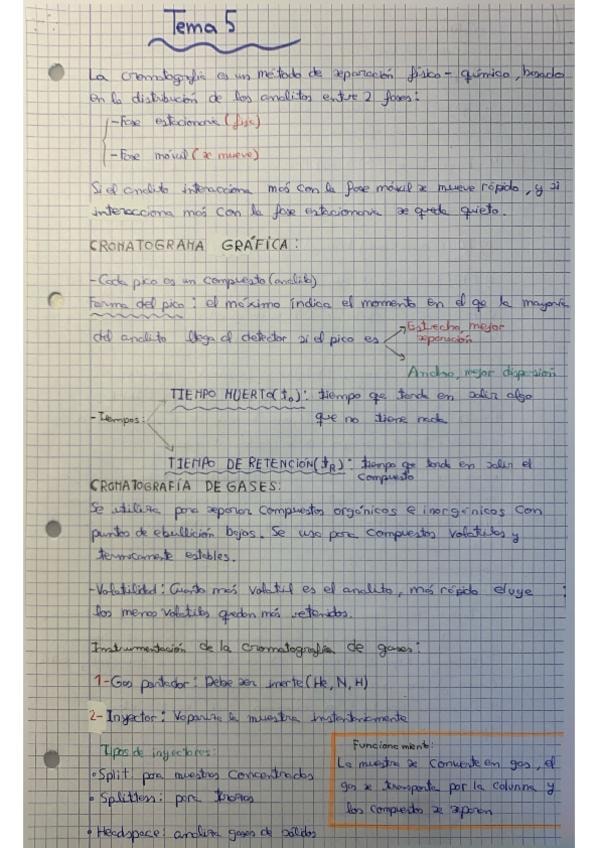 Tema 5
La cromatografía es un método de separación físico-químico, basado
en la distribución de los analitos entre 2 fases:
-Fase estacionaria (fija)
-Fase móvil (se mueve)
Si el analito interacciona más con la fase móvil se mueve rápido, y si
interacciona más con la fase estacionaria se queda quieto.
CROMATOGRAMA GRÁFICA:
-Cada pico es un compuesto (analito)
Forma del pico: el máximo índica el momento en el qe la mayoría
del analito llega al detector si el pico es
Estrecho, mejor
separación
Ancho, mejor dispersión
-Tiempos:
TIEMPO MUERTO (t₀): tiempo qe tarda en salir algo
que no tiene nada
TIEMPO DE RETENCIÓN (tR): tiempo qe tarda en salir el
compuesto
CROMATOGRAFÍA DE GASES:
Se utiliza para separar compuestos orgánicos e inorgánicos con
puntos de ebullición bajos. Se usa para compuestos volatiles y
termicamente estables.
-Volatilidad: Cuanto más volatil es el analito, más rápido eluye
los menos volatiles quedan más retenidos.
Instrumentación de la cromatografía de gases:
1-Gas portador: Debe ser inerte (He, N, H)
2-Inyector: Vaporiza la muestra instantáneamente
Tipos de inyectores:
•Split: para muestras concentradas
•Splitless: para trazas
•Headspace: analiza gases de sólidos
Funcionamiento:
La muestra se convierte en gas, el
gas se transporta por la columna y
los compuestos se separan